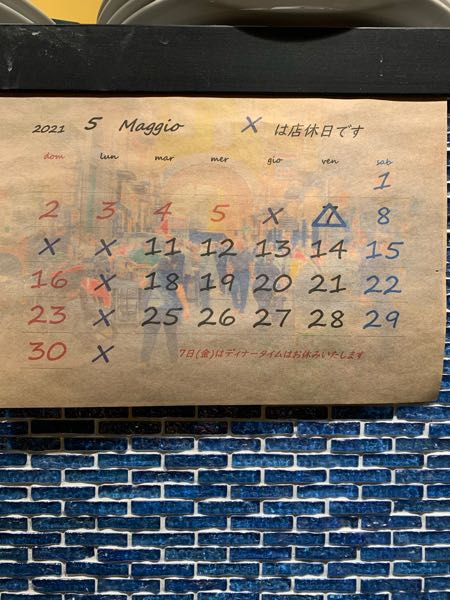 2021 5 Maggio × は店休日です
dom lun mar mer gio ven sab
1
2 3 4 5 × 7 8
× × 11 12 13 14 15
16 × 18 19 20 21 22
23 × 25 26 27 28 29
30 × 7日(金)はディナータイムはお休みいたします